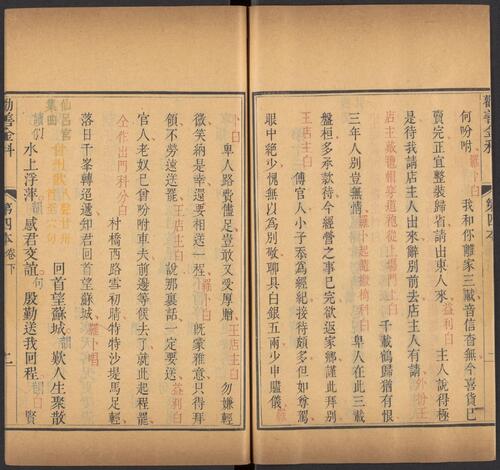 勸善金科
第四本
何吩咐 羅卜白 我和你離家三載音信杳無今喜貨已
賣完正宜整裝歸省請出東人來 益利白 主人說得極
是待我請店主人出來辭別前去店主人有請
店主人白 千載鶴歸猶有恨
三年人別豈無情 羅卜起隨撤椅科白 卑人在此三載
盤桓多承款待今經營之事已完欲返家鄉謹此拜別
王店主白 傅官人小子忝為經紀接待頗多但如尊駕
眼中絕少愧無以為別敬聊具白銀五兩少申贐儀
卜白 卑人路費儘足豈敢又受厚贈 王店主白 勿嫌輕
微笑納是幸還要相送一程 羅卜白 既蒙雅意只得拜
領不勞遠送罷 王店主白 說那裏話一定要送 益利白
官人老奴已曾吩咐車夫前邊等候去了就此起程罷
仝作出門科分白 村橋西路雪初晴特特沙堤馬足輕
落日千峯轉迢遞知君回首望蘇城 羅卜唱
仙呂宮集曲 回首望蘇城 歎人生聚散
水上浮萍 感君交誼 殷勤送我回程 賢
勸善金科
第四本卷下